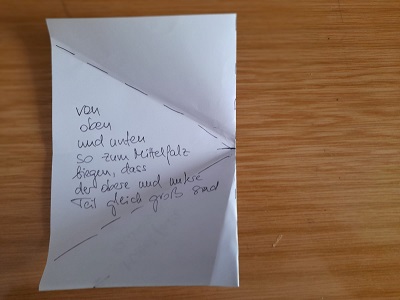 von
oben
und unten
so zum Mittelfalz
biegen, dass
der obere und untere
Teil gleich groß sind